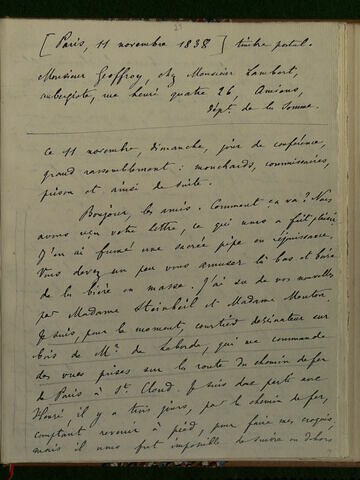 [Paris, 11 novembre 1838] timbre postal.
Monsieur Geoffroy, chez Monsieur Lambert,
aubergiste, rue henri quatre 26, Amiens,
dépt. de la Somme.
Ce 11 novembre, dimanche, jour de conférence,
grand rassemblement : mouchards, commissaires,
prison et ainsi de suite.
Bonjour, les amis. Comment ça va ? Nous
avons reçu votre lettre, ce qui nous a fait plaisir.
J'en ai fumé une sacrée pipe en réjouissance.
Vous devez un peu vous amuser là bas et boire
de la bière en masse. J'ai su de vos nouvelles
par Madame Steinheil et Madame Mouton.
Je suis, pour le moment, courtier dessinateur sur
bois de Mr. de Laborde, qui me commande
des vues prises sur la route du chemin de fer
de Paris à St. Cloud. Je suis donc parti avec
Henri il y a trois jours, par le chemin de fer,
comptant revenir à pied, pour faire mes croquis,
mais il nous fut impossible de suivre en dehors